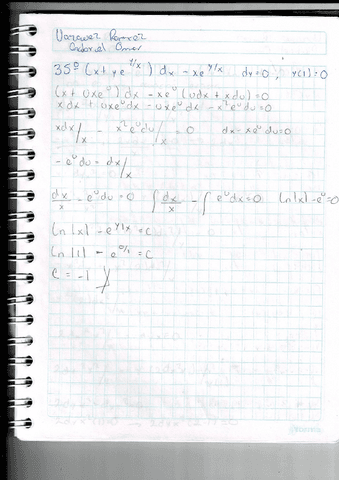 35º (x + y e^y/x) dx - x e^y/x dy = 0 , y(1) = 0
(x + ux e^u) dx - x e^u (u dx + x du) = 0
x dx + u x e^u dx - u x e^u dx - x² e^u du = 0
x dx/x - x² e^u du/x = 0 dx - x e^u du = 0
- e^u du = dx/x
dx/x - e^u du = 0 ∫ dx/x - ∫ e^u du = 0 ln|x| - e^u = 0
ln|x| - e^y/x = C
ln|1| - e^0/1 = C
C = -1